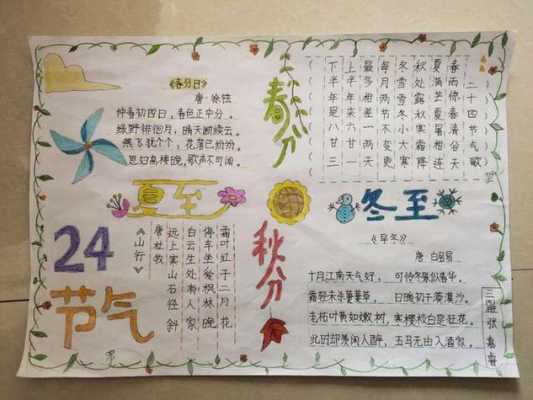 《春分日》
唐:徐铉
仲春初四日，春色正中分。
绿野徘徊月，晴天断续云。
燕飞犹个个，花落已纷纷。
思妇高楼晚，歌声不可闻。
春分
二十四节气歌
春雨惊春清谷天
夏满芒夏暑相连
秋处露秋寒霜降
冬雪雪冬小大寒
每月两节不变更
最多相差一两天
上半年来六廿一
下半年是八廿三
夏至
冬至
24
节气
《山行》
唐杜牧
远上寒山石径斜
白云生处有人家
停车坐爱枫林晚
霜叶红于二月花
秋分
《早冬》
唐 白居易
十月江南天气好，可怜冬景似春华。
霜轻未杀萋萋草，日暖初干漠漠沙。
老柘叶黄如嫩树，寒樱枝白是狂花。
此时却羡闲人醉，五马无由入酒家。